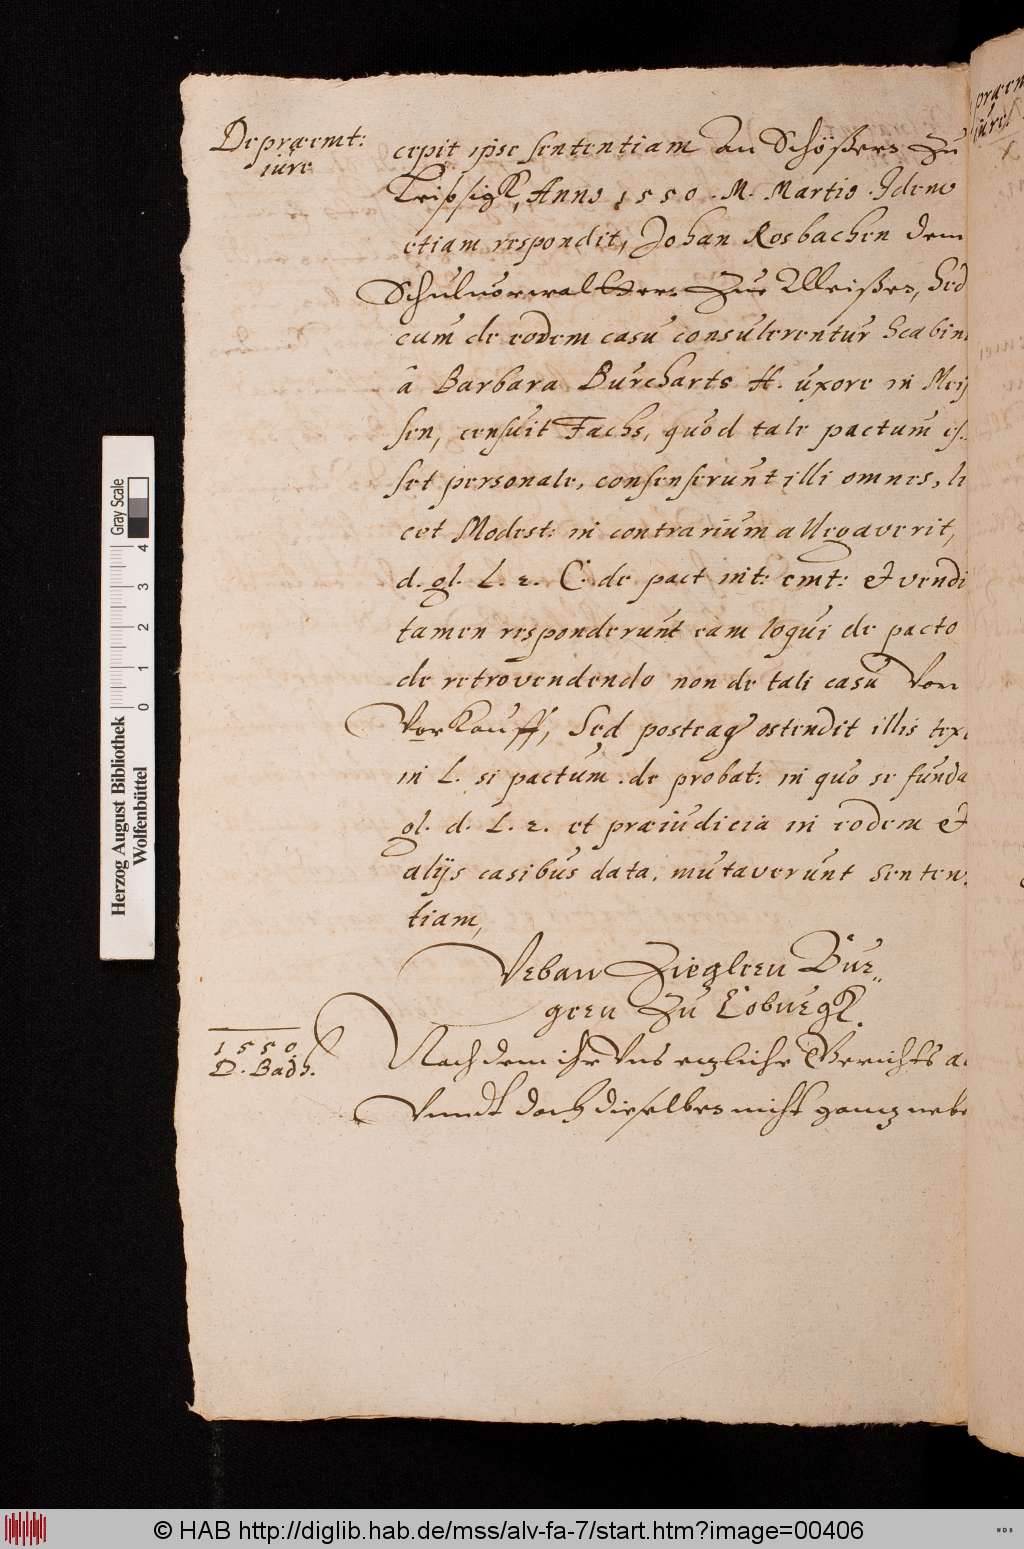 De præemt:
iúre
cepit ipse sententiam An Schößers zu
Leipsigk, Anno 1550. M. Martio. Idem
etiam respondit, Johan Rosbachen dem
Schulvorwaltters zue Meißen, Sed
cum de eodem casú consúlerentúr Scabini
â Barbara Búrcharts H. úxore in Meis
sen, censúit Fachs, qúod tale pactúm es-
set personale, consenserúnt illi omnes, li
cet Modest: in contrariúm allegaverit,
d. gl. L. 2. C. de pact int: emt: et vendi
tamen responderúnt eam loqúi de pacto
de retrovendendo non de tali casú Von
Vorkauff, Sed posteaq ostendit illis text
in L. si pactúm. de probat: in qúo se fúnda
gl. d. L. 2. et præiúdicia in eodem et
alijs casibús data, mútaverúnt Senten-
tiam,
Urban Zieglern Bur-
gern zu Coburgk.
1550
D. Badh.
Nach dem ihr Uns etzliche Gerichts
Unndt doch dieselben nicht gantz nebe
präem
iúre
Herzog August Bibliothek
Wolfenbüttel
Gray Scale
0 1 2 3 4
© HAB http://diglib.hab.de/mss/alv-fa-7/start.htm?image=00406